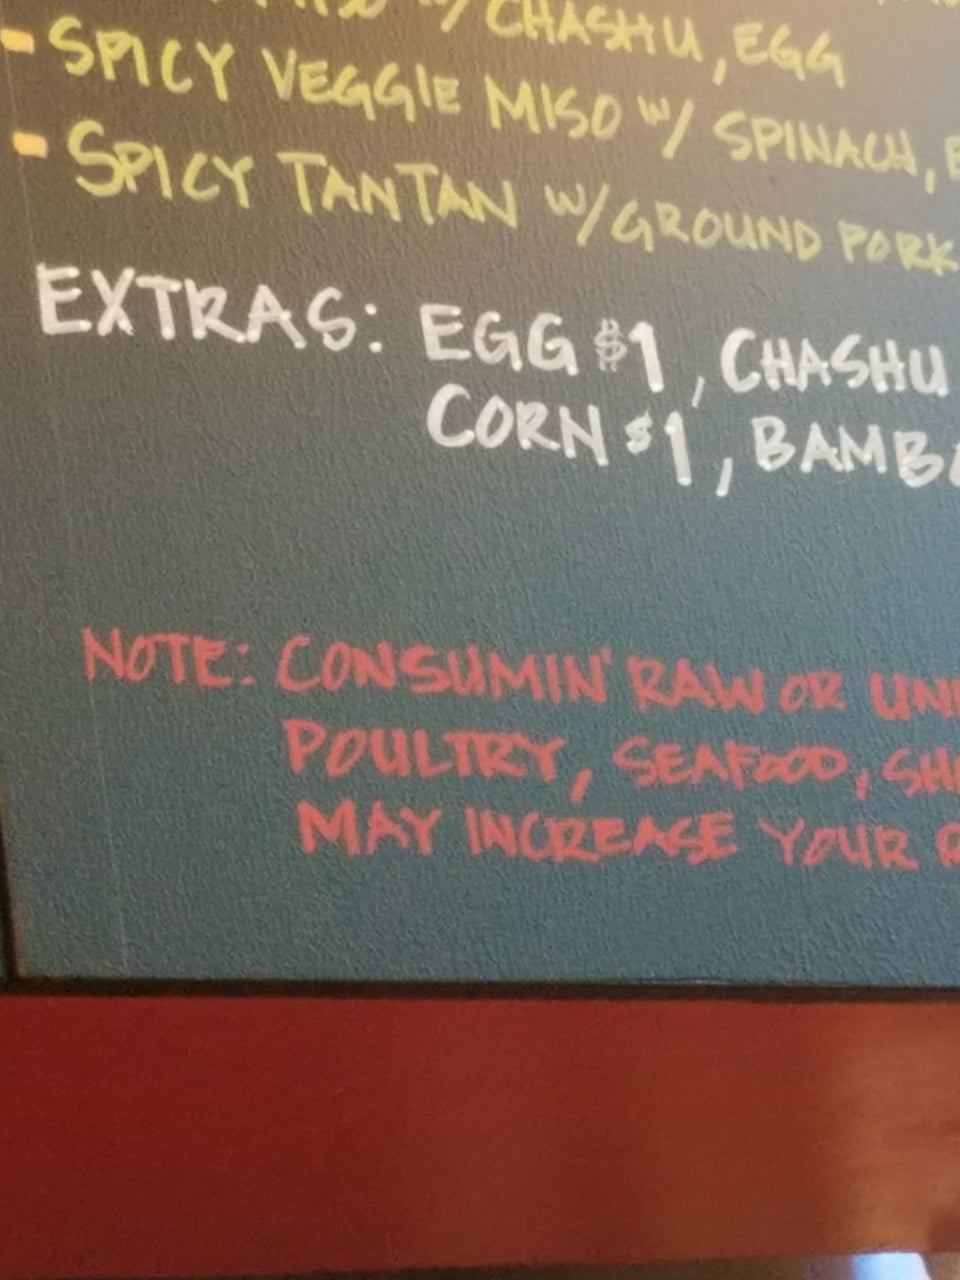 W/ CHASHU, EGG
- SPICY VEGGIE MISO W/ SPINACH,
- SPICY TANTAN W/ GROUND PORK
EXTRAS: EGG $1, CHASHU
CORN $1,
NOTE: CONSUMIN' RAW OR
POULTRY, SEAFOOD,
MAY INCREASE YOUR